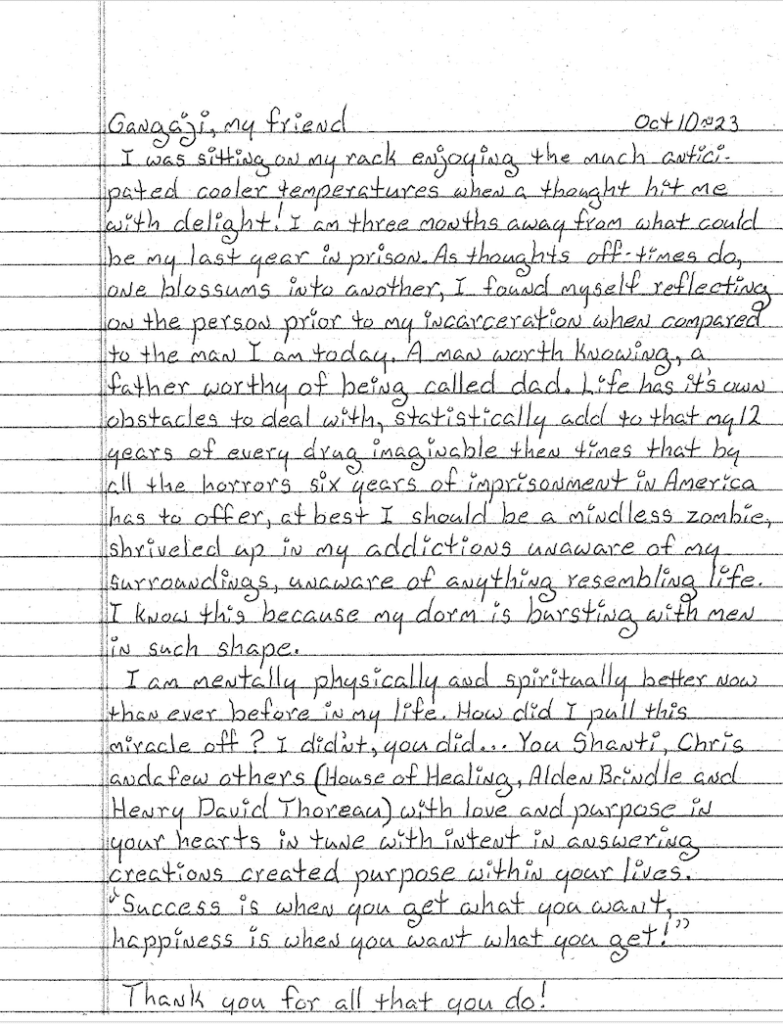 Gangaji, my friend Oct 10~23
I was sitting on my rack enjoying the much antici-
pated cooler temperatures when a thought hit me
with delight! I am three months away from what could
be my last year in prison. As thoughts off-times do,
one blossums into another, I found myself reflecting
on the person prior to my incarceration when compared
to the man I am today. A man worth knowing, a
father worthy of being called dad. Life has it's own
obstacles to deal with, statistically add to that my 12
years of every drug imaginable then times that by
all the horrors six years of imprisonment in America
has to offer, at best I should be a mindless zombie,
shriveled up in my addictions unaware of my
surroundings, unaware of anything resembling life.
I know this because my dorm is bursting with men
in such shape.
I am mentally physically and spiritually better now
than ever before in my life. How did I pull this
miracle off? I didn't, you did... You Shanti, Chris
and a few others (House of Healing, Alden Brindle and
Henry David Thoreau) with love and purpose in
your hearts in tune with intent in answering
creations created purpose within your lives.
"Success is when you get what you want,
happiness is when you want what you get!"
Thank you for all that you do!